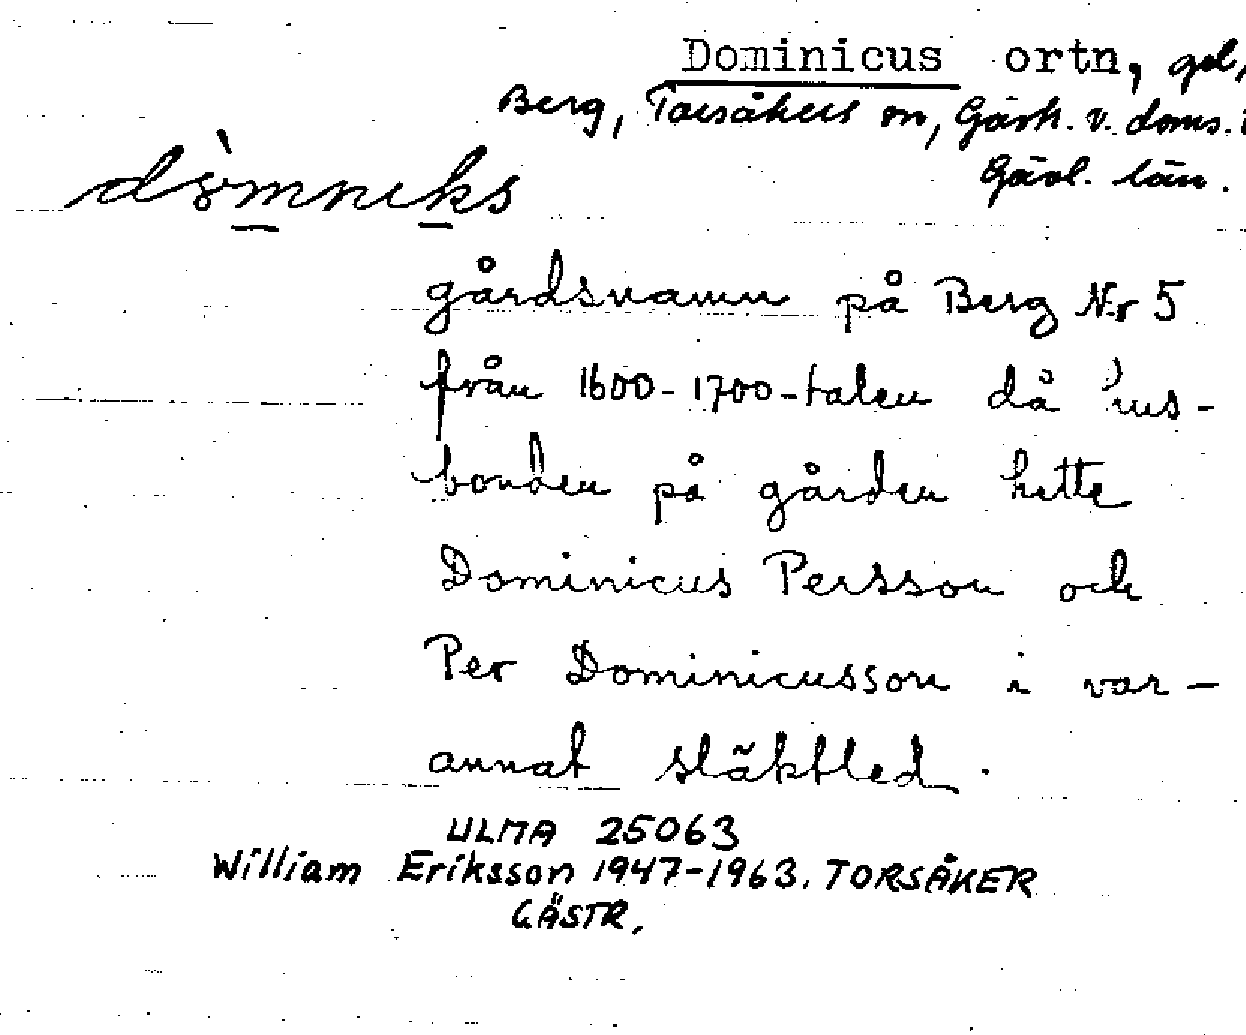 Dominicus ortn, gd,
Berg, Torsåkers sn, Gästr. v. doms.
Gävl. län.
dòmneks
gårdsnamn på Berg Nr 5
från 1600-1700-talen då hus-
bonden på gården hette
Dominicus Persson och
Per Dominicusson i var-
annat släktled.
ULMA 25063
William Eriksson 1947-1963. TORSÅKER
GÄSTR.